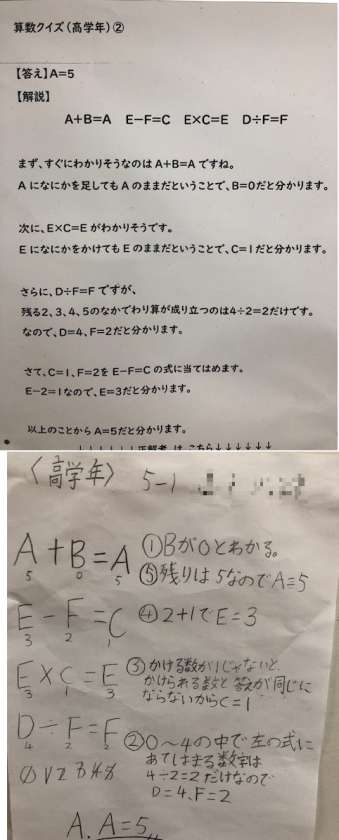 算数クイズ（高学年）②
【答え】A=5
【解説】
A+B=A E−F=C E×C=E D÷F=F
まず、すぐにわかりそうなのは A+B=A ですね。
A になにかを足しても A のままだということで、B=0だと分かります。
次に、E×C=E がわかりそうです。
E になにかをかけても E のままだということで、C=1だと分かります。
さらに、D÷F=F ですが、
残る2、3、4、5のなかでわり算が成り立つのは4÷2=2だけです。
なので、D=4、F=2だと分かります。
さて、C=1、F=2を E−F=C の式に当てはめます。
E−2=1なので、E=3だと分かります。
以上のことから A=5だと分かります。
↓↓↓↓↓↓正解者 は こちら↓↓↓↓↓↓
〈高学年〉 5-1
A+B=A ①Bが0とわかる。
5 0 5 ⑤残りは5なのでA=5
E−F=C ④2+1でE=3
3 2 1
E×C=E ③かける数が1じゃないと、
3 1 3 かけられる数と答えが同じに
ならないからC=1
D÷F=F ②0〜4の中で左の式に
4 2 2 あてはまる数字は
0 1 2 3 4 5 4÷2=2だけなので
D=4、F=2
A. A=5